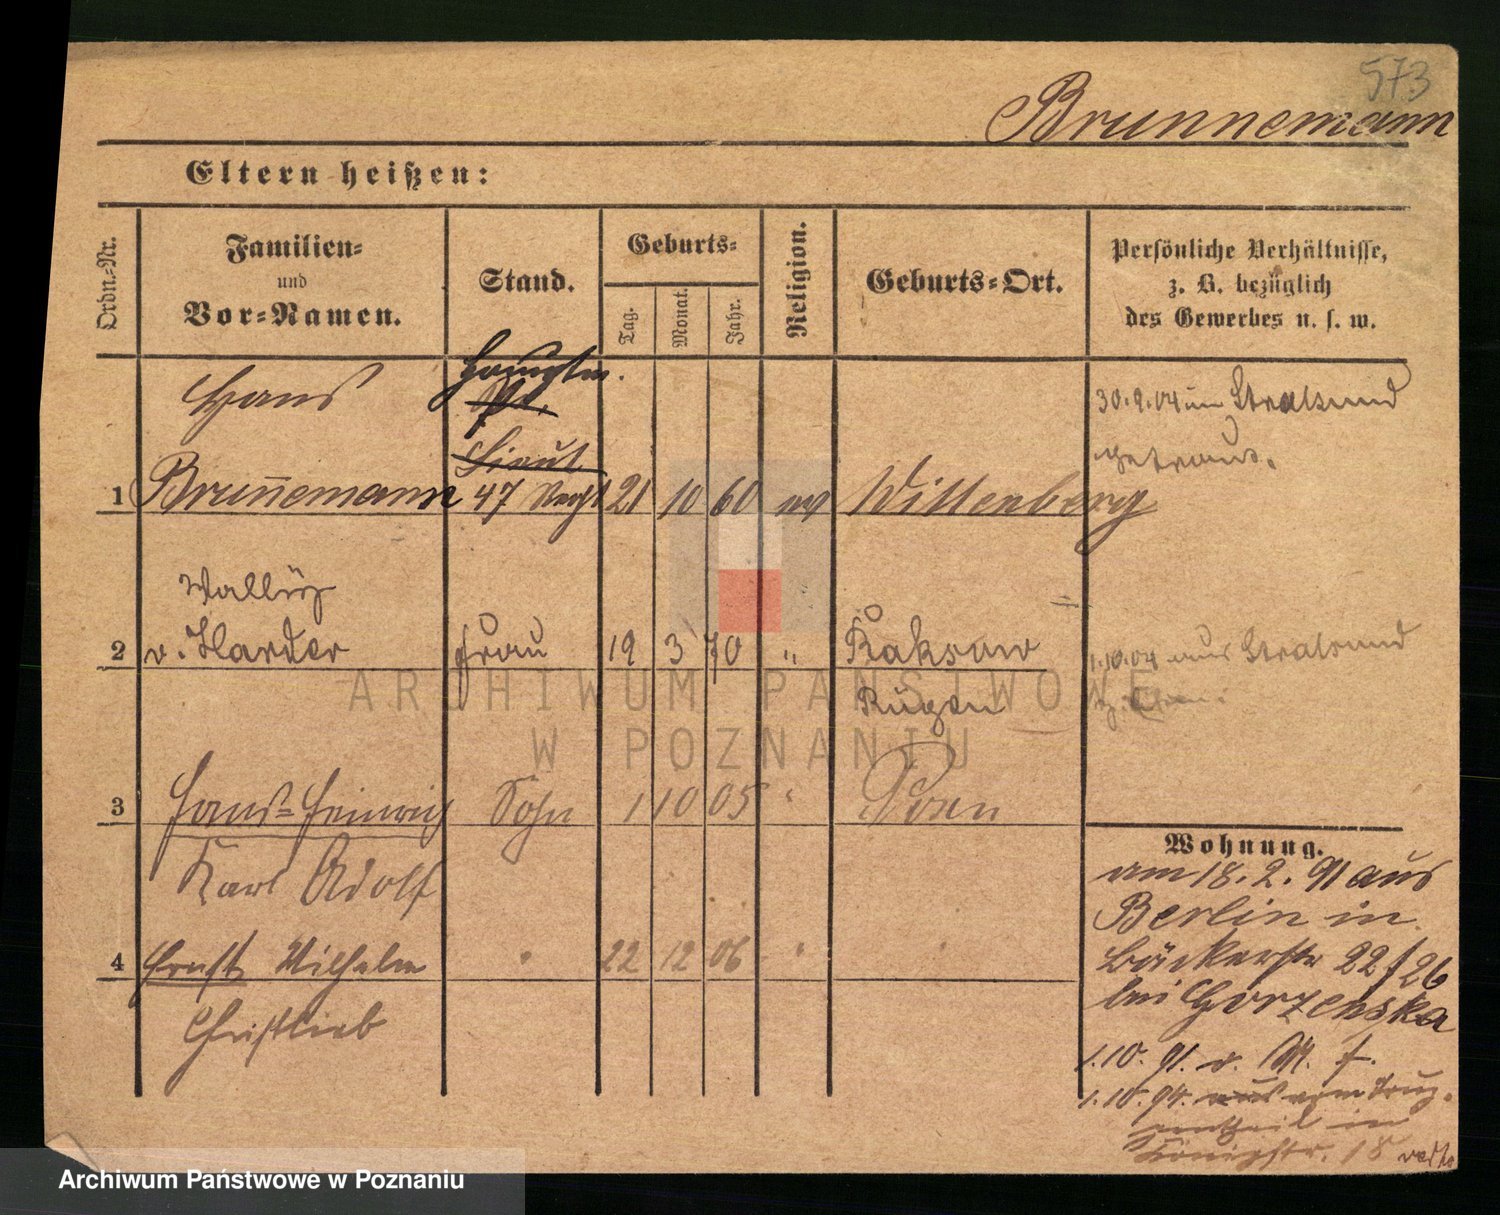 573
Brunnemann
Eltern heißen:
Ordn.-Nr.
Familien-
und
Vor-Namen.
Stand.
Geburts-
Tag.
Monat.
Jahr.
Religion.
Geburts-Ort.
Persönliche Verhältnisse,
z. B. bezüglich
des Gewerbes u. s. w.
Hans
Hauptm.
Lieut
1 Brunnemann 47 Regt 21 10 60 ev Wittenberg
30.9.04 in Stralsund
getraut.
2 v. Harder Frau 19 3 70 " Kaksow
Rügen
1.10.04 aus Stralsund
3 Hans-Heinrich Sohn 1 10 05 " Posen
Karl Adolf
4 Ernst Wilhelm " 22 12 06 " "
Christlieb
Wohnung.
am 18.2.91 aus
Berlin in
Bäckerstr 22/26
bei Gorzenska
1.10.91. v. M. f.
1.10.94. vom Truppentheil in
Königstr. 18
ARCHIWUM PAŃSTWOWE
W POZNANIU
Archiwum Państwowe w Poznaniu